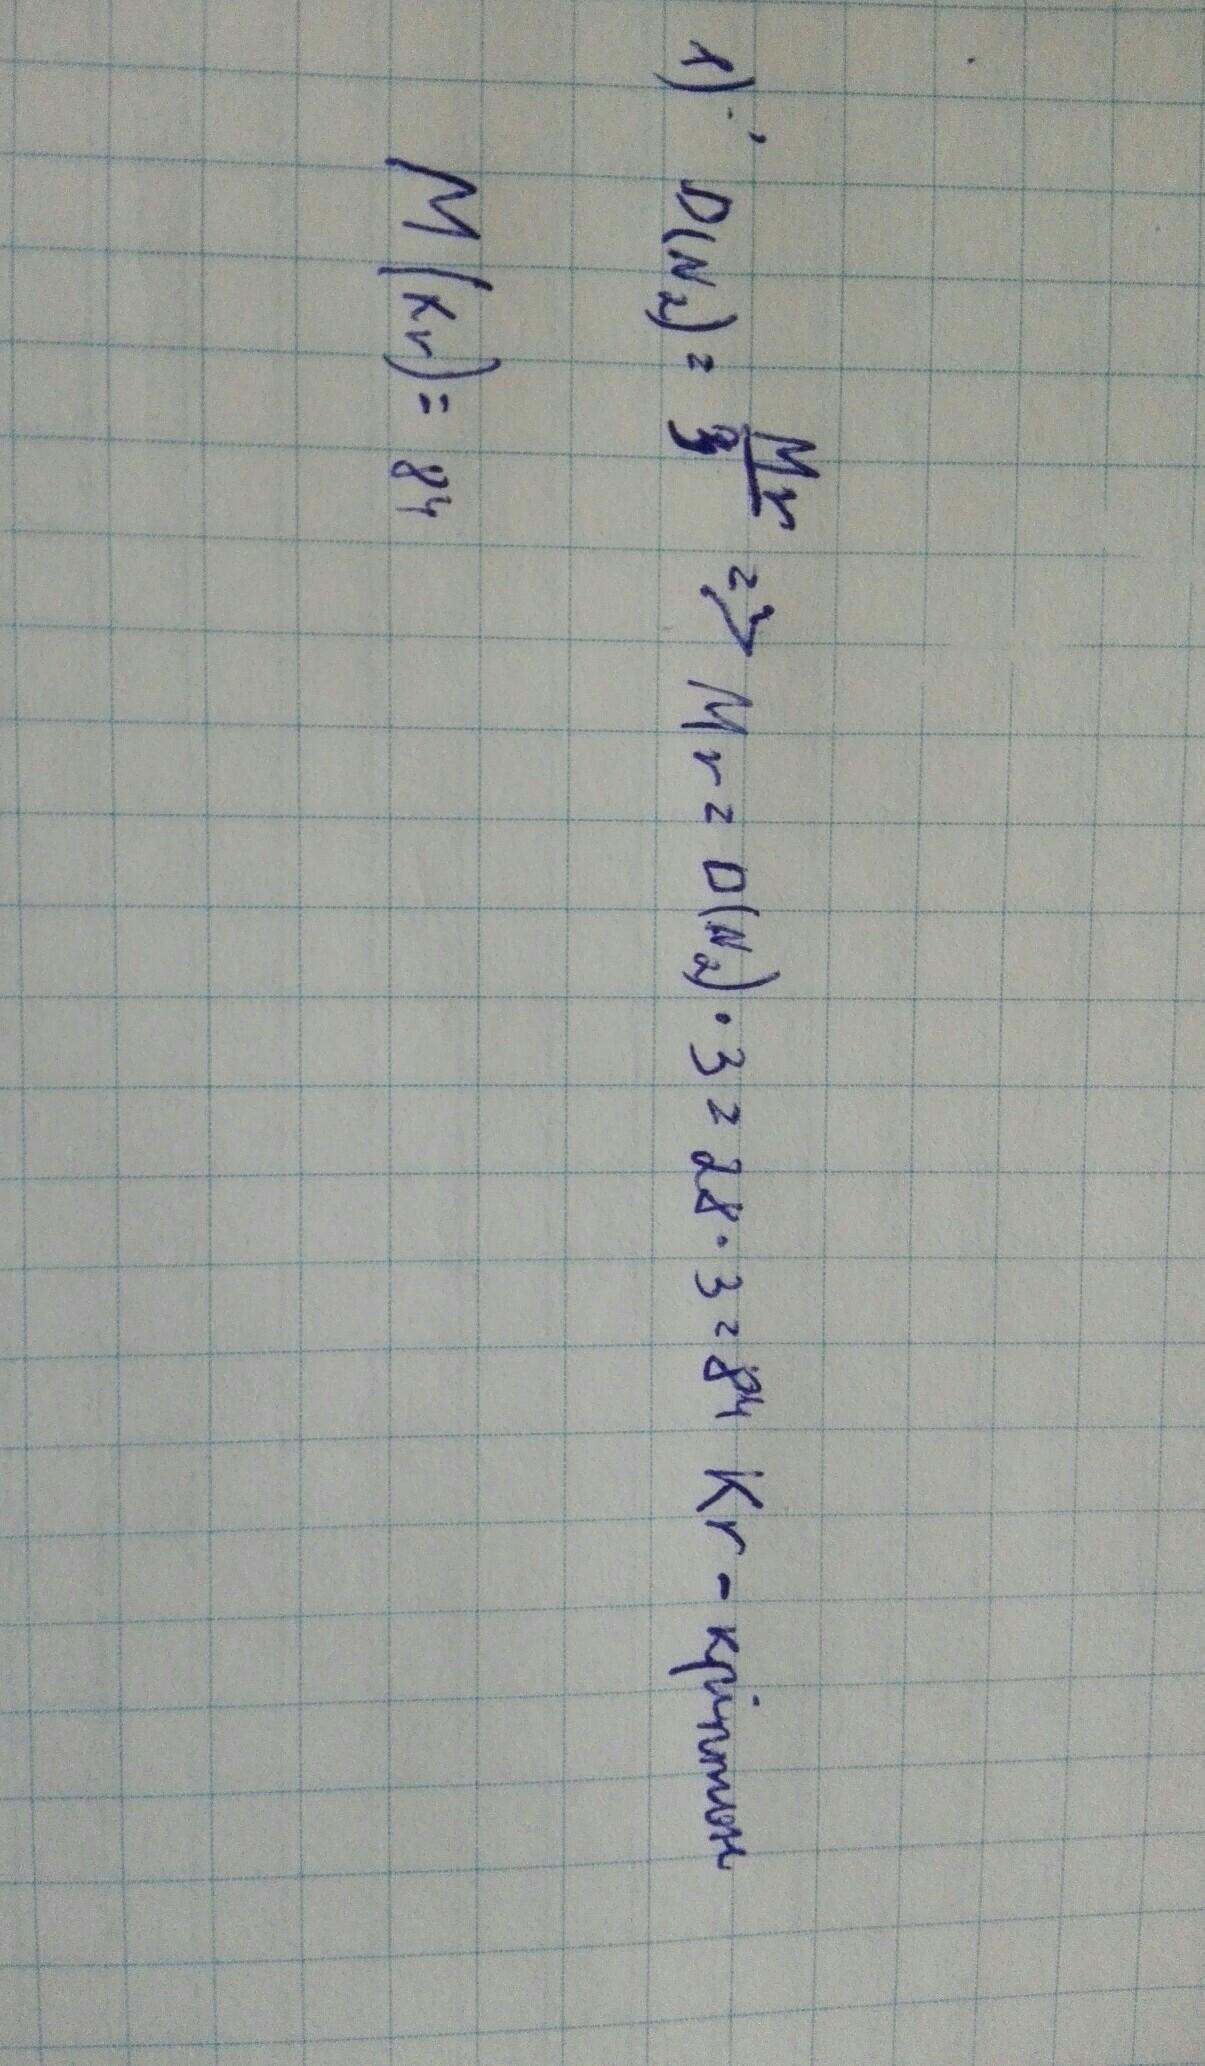 1) D(N₂) = Mr/3 => Mr = D(N₂) · 3 = 28 · 3 = 84 Kr - кріптон
M(Kr) = 84